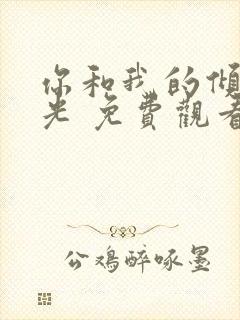 你和我的倾
光 免費觀看
公鸡醉啄墨